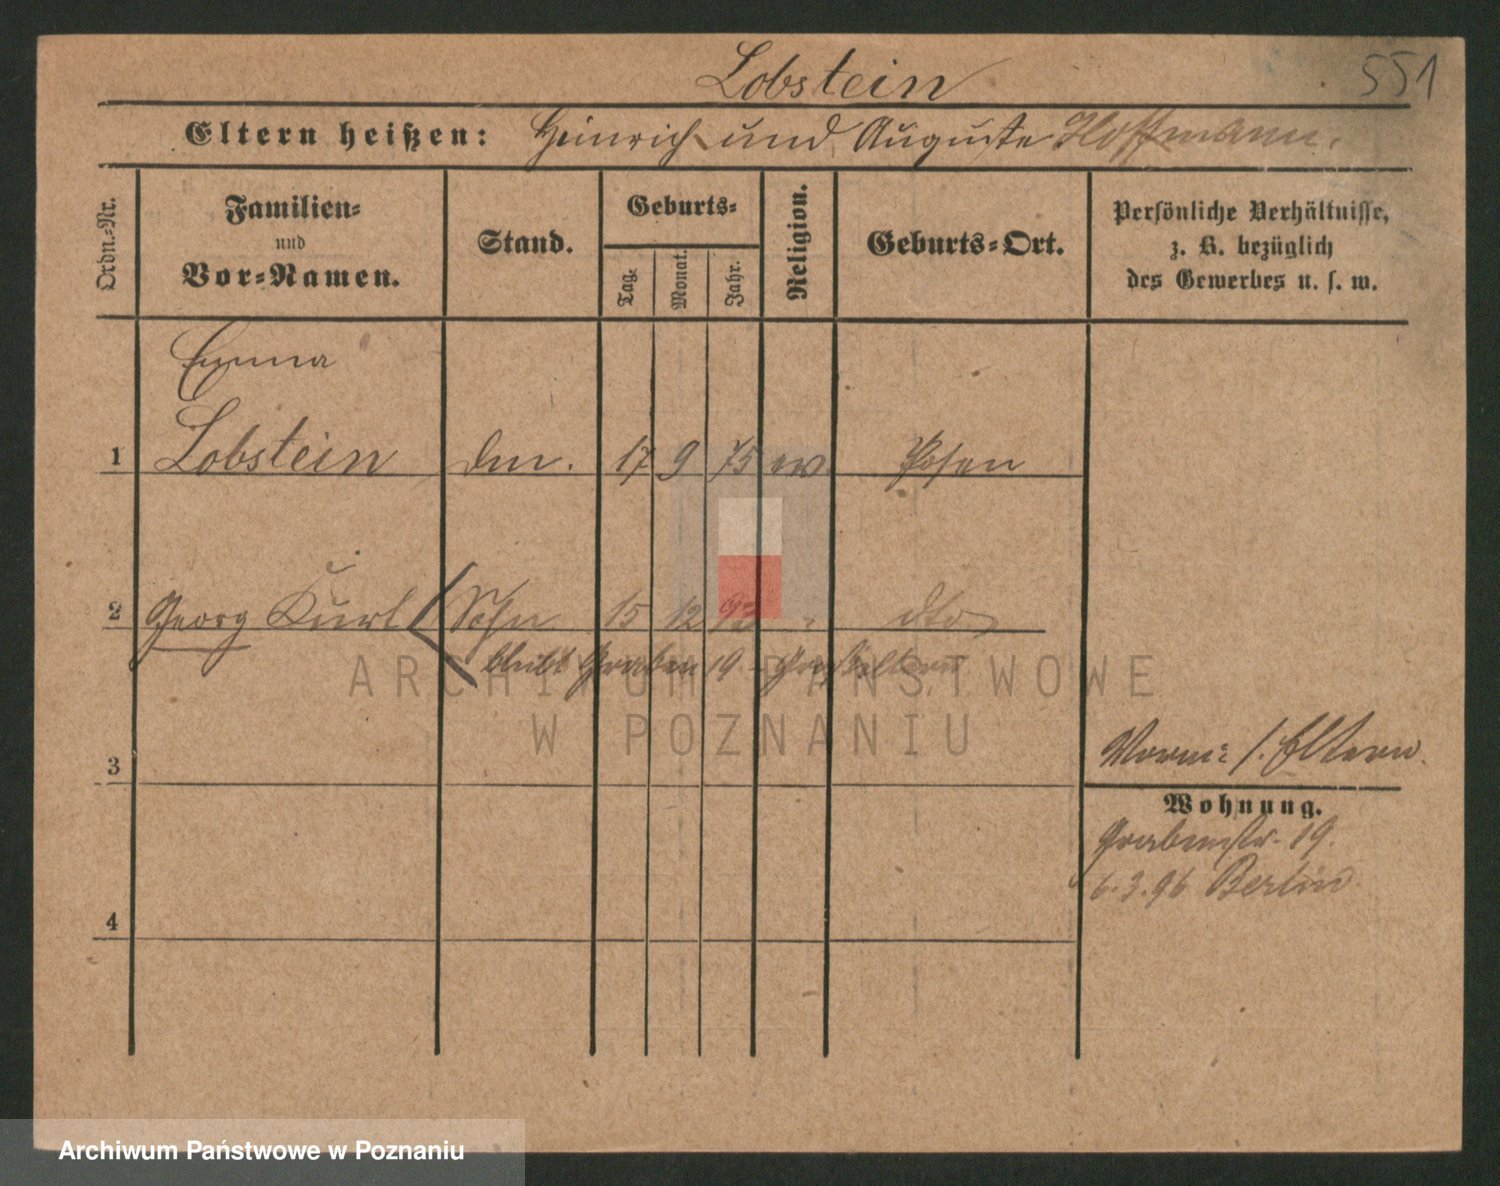 Lobstein 551
Eltern heißen: Heinrich und Auguste Hoffmann.
Ordn.-Nr.
Familien-
und
Vor-Namen.
Stand.
Geburts-
Tag. Monat. Jahr.
Religion.
Geburts-Ort.
Persönliche Verhältnisse,
z. B. bezüglich
des Gewerbes u. s. w.
Emma
1 Lobstein 17 9 75 ev. Posen
2 Georg Kurt Sohn 15 12 93 " dto
bleibt Graben 19 Großeltern
3
Vorm: s. Eltern.
Wohnung.
Grabenstr. 19.
6.3.96 Berlin
4
ARCHIWUM PAŃSTWOWE
W POZNANIU
Archiwum Państwowe w Poznaniu